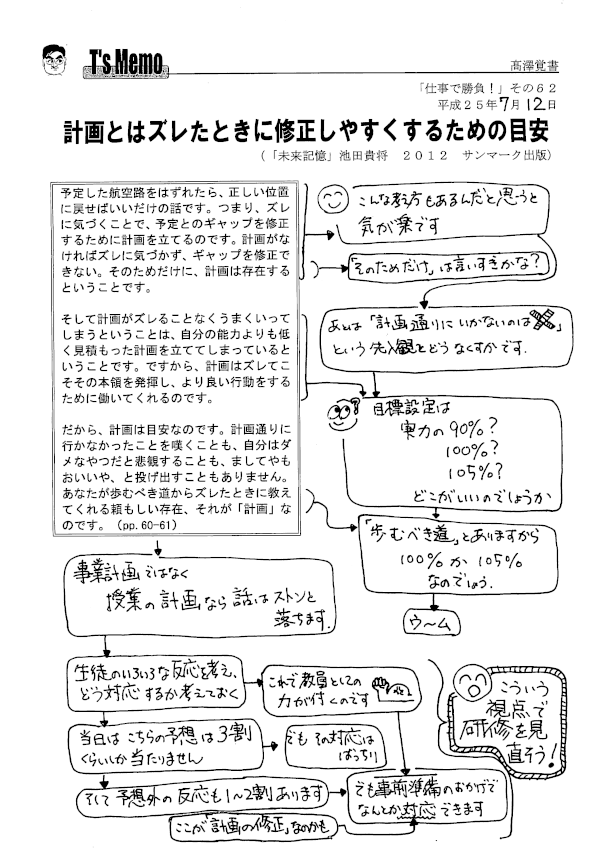 T's Memo
髙澤覚書
「仕事で勝負！」その６２
平成２５年7月12日
計画とはズレたときに修正しやすくするための目安
（「未来記憶」池田貴将　２０１２　サンマーク出版）
予定した航空路をはずれたら、正しい位置
に戻せばいいだけの話です。つまり、ズレ
に気づくことで、予定とのギャップを修正
するために計画を立てるのです。計画がな
ければズレに気づかず、ギャップを修正で
きない。そのためだけに、計画は存在する
ということです。
そして計画がズレることなくうまくいって
しまうということは、自分の能力よりも低
く見積もった計画を立ててしまっていると
いうことです。ですから、計画はズレてこ
そその本領を発揮し、より良い行動をする
ために働いてくれるのです。
だから、計画は目安なのです。計画通りに
行かなかったことを嘆くことも、自分はダ
メなやつだと悲観することも、ましてやも
おいいや、と投げ出すこともありません。
あなたが歩むべき道からズレたときに教え
てくれる頼もしい存在、それが「計画」な
のです。（pp.60-61）
こんな考え方もあるんだと思うと
気が楽です
「そのためだけ」は言いすぎかな？
あとは「計画通りにいかないのは×」
という先入観をどうなくすかです.
目標設定は
実力の90%?
100%?
105%?
どこがいいのでしょうか
「歩むべき道」とありますから
100%か105%
なのでしょう.
ウ〜ム
事業計画ではなく
授業の計画なら話はストンと
落ちます.
生徒のいろいろな反応を考え、
どう対応するか考えておく
これで教員としての
力が付くのです
当日はこちらの予想は3割
くらいしか当たりません
でもその対応は
ばっちり
そして予想外の反応も1〜2割あります
でも事前準備のおかげで
なんとか対応できます
ここが「計画の修正」なのかも
こういう
視点で
研修を見
直そう！